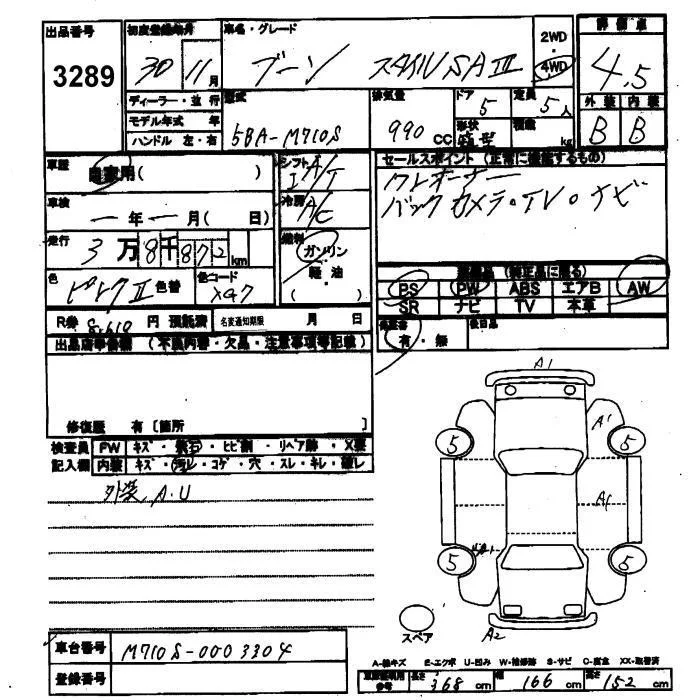 出品番号 初度登録年月 車名・グレード 2WD 評価点
3289 30 11月 ブーン スタイルSAⅢ 4WD 4.5
ディーラー・並行 型式 排気量 ドア 定員 外装 内装
モデル年式 年 5BA-M710S 990CC 5 5人 B B
ハンドル 左・右 形状 箱型 積載 kg
車歴 自家用( ) シフト IAT セールスポイント (正常に機能するもの)
車検 ー年ー月( 日) 冷房 AC
バックカメラ・TV・ナビ
走行 3万8千872km 燃料 ガソリン
軽・油
( )
色 ピンクⅡ 色替 色コード
BS PW ABS エアB AW
SR ナビ TV 本革
R券 8,610円 預託済 名変通知期限 月 日 保証書 有・無 後日品
出品店申告欄 (不具合内容・欠品・注意事項等記載)
修復歴 有〔箇所 〕
検査員 FW キズ・飛石・ヒビ割・リペア跡・X要
記入欄 内装 キズ・汚レ・コゲ・穴・スレ・キレ・破レ
外装、A.U
A1
A1
5 5
A1
5 5
スペア
A2
車台番号 M710S-0003304
登録番号
A-線キズ E-エクボ U-凹み W-補修跡 S-サビ C-腐食 XX-取替済
参考 長さ 368cm 幅 166cm 高さ 152cm